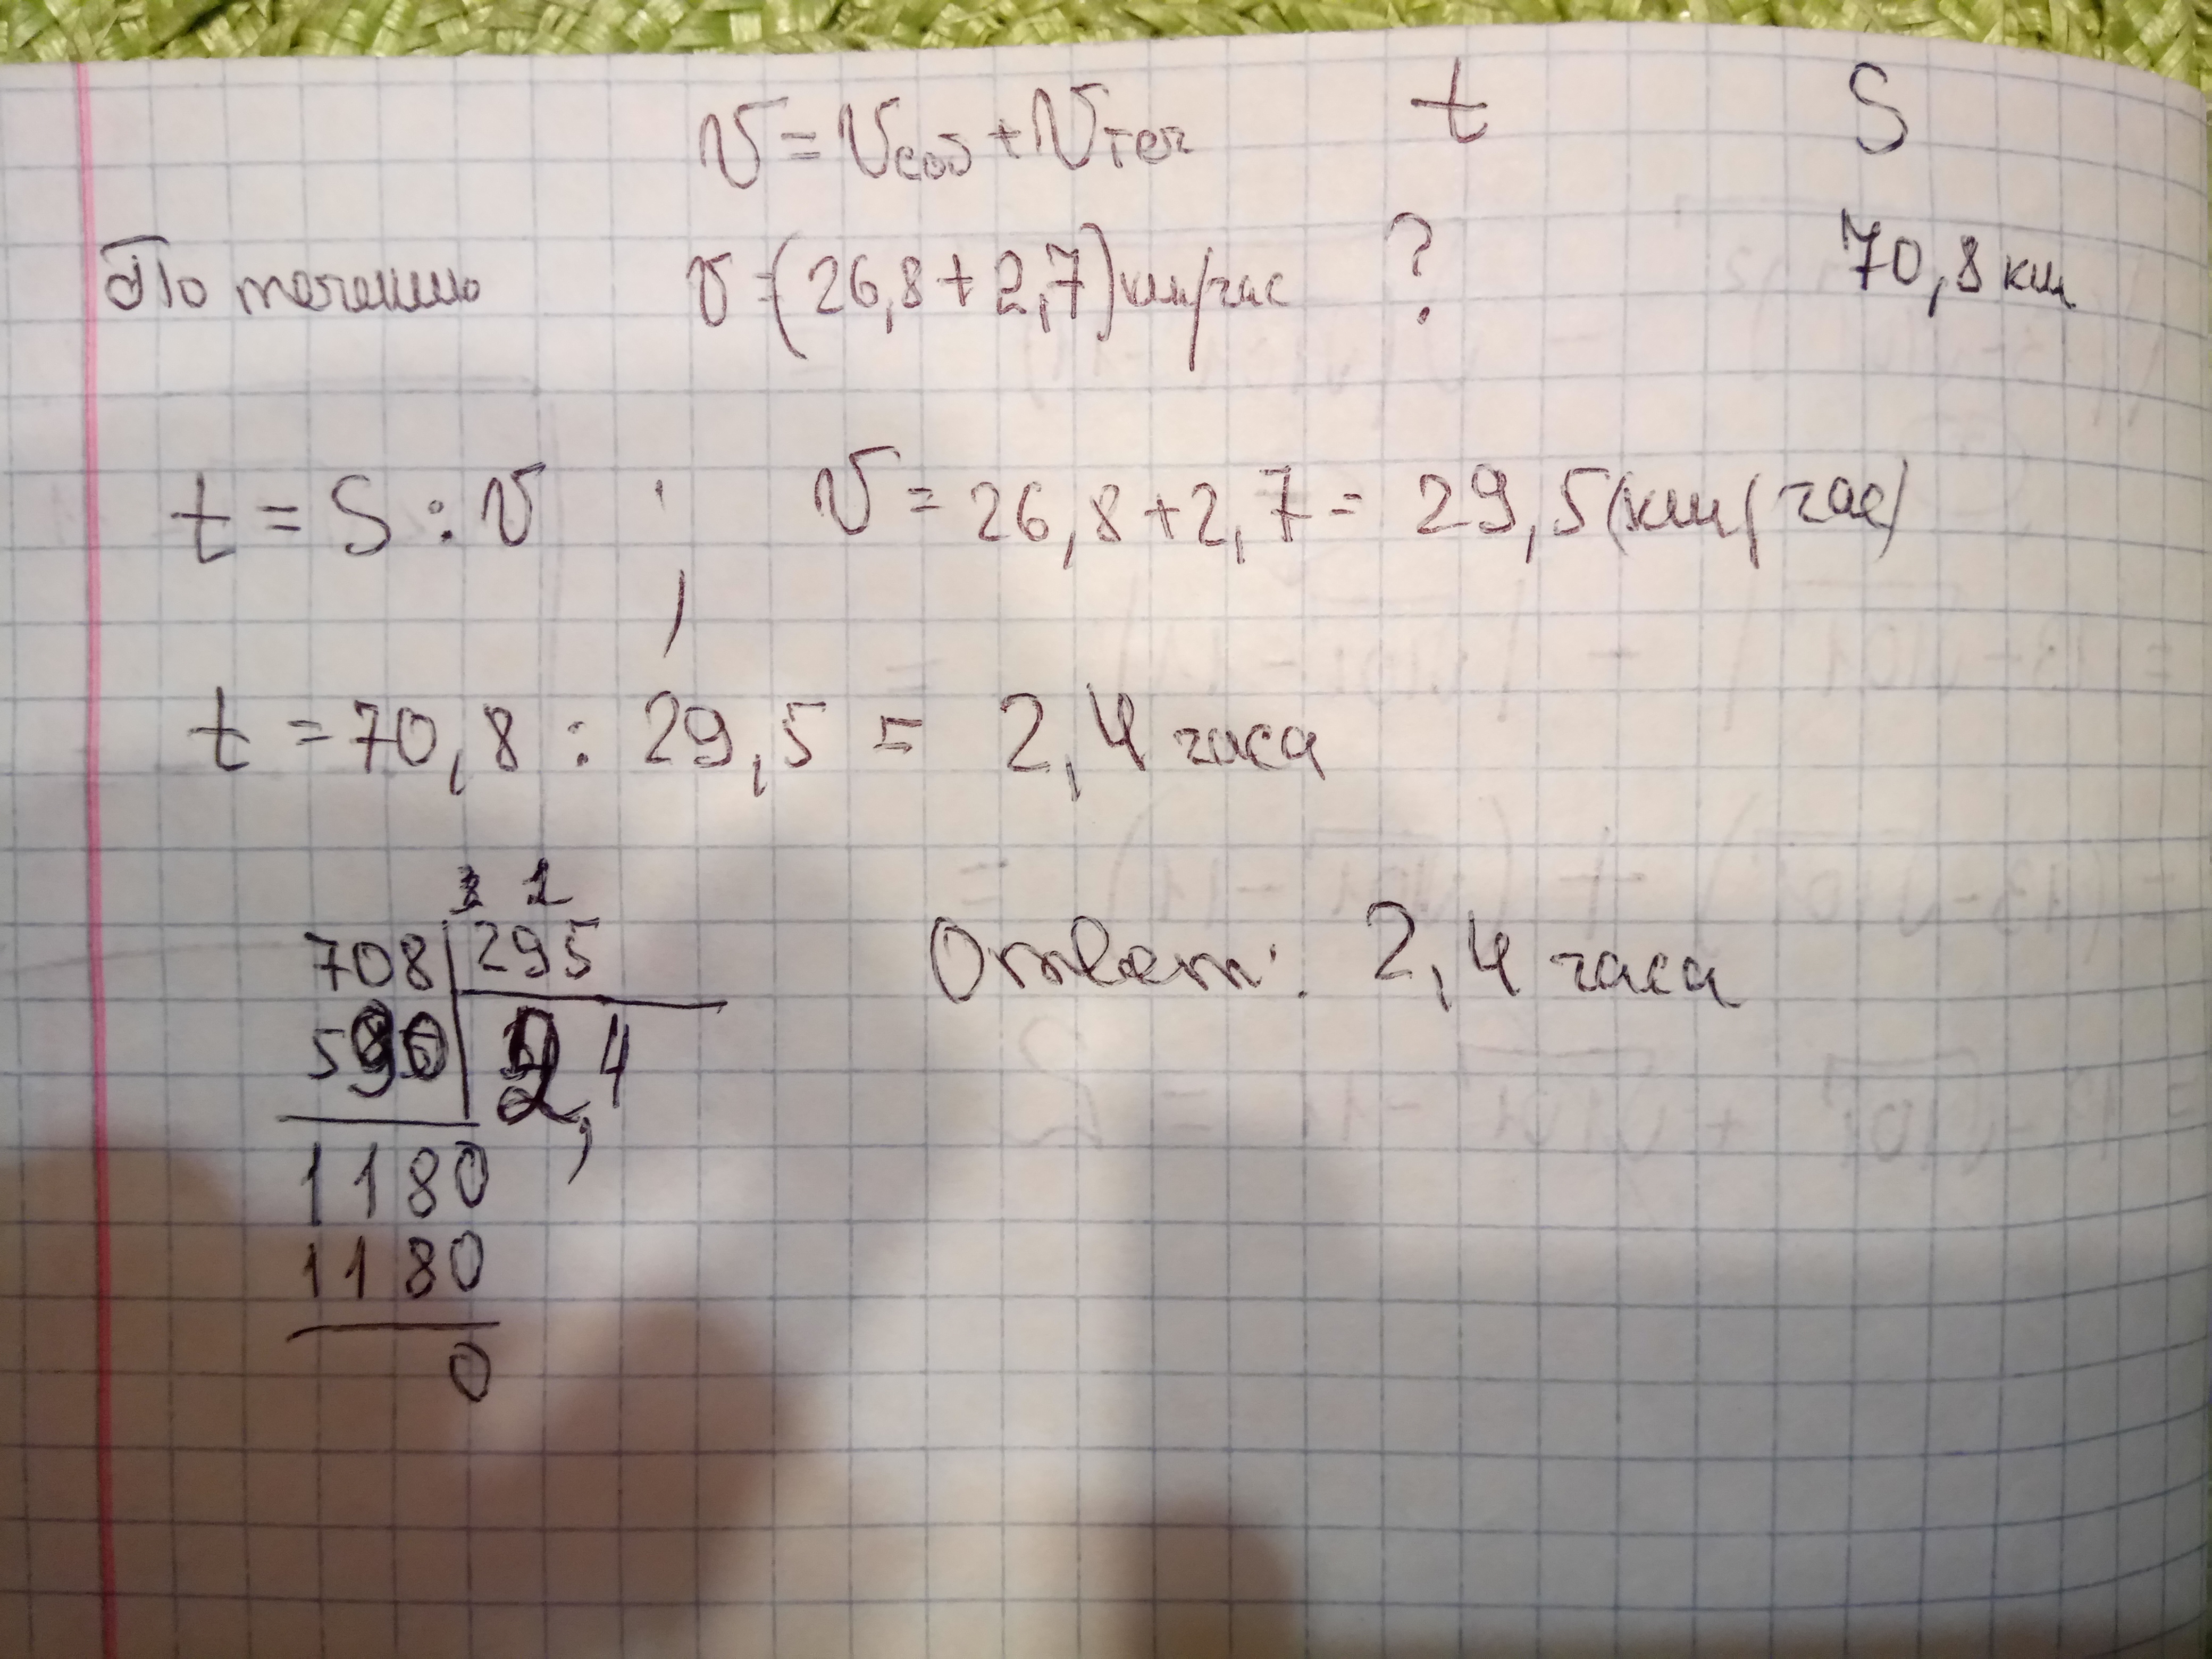 v = vсоб + vтеч t S
По течению v = (26,8 + 2,7) км/час ? 70,8 км
t = S : v ; v = 26,8 + 2,7 = 29,5 (км/час)
t = 70,8 : 29,5 = 2,4 часа
3 2
708 295
590 2,4
1180
1180
0
Ответ: 2,4 часа